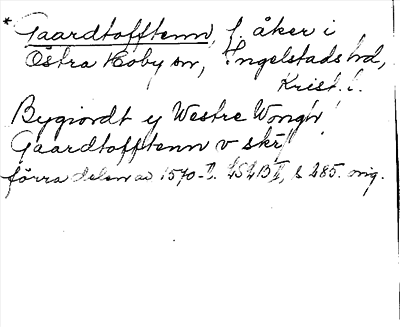 * Gaardtofftenn, f. åker i
Östra Hoby sn, Ingelstads hd,
Krist. l.
Bygiordt y Westre Wongh
Gaardtofftenn v skr
förra delen av 1570-t. B II, s 285. orig.